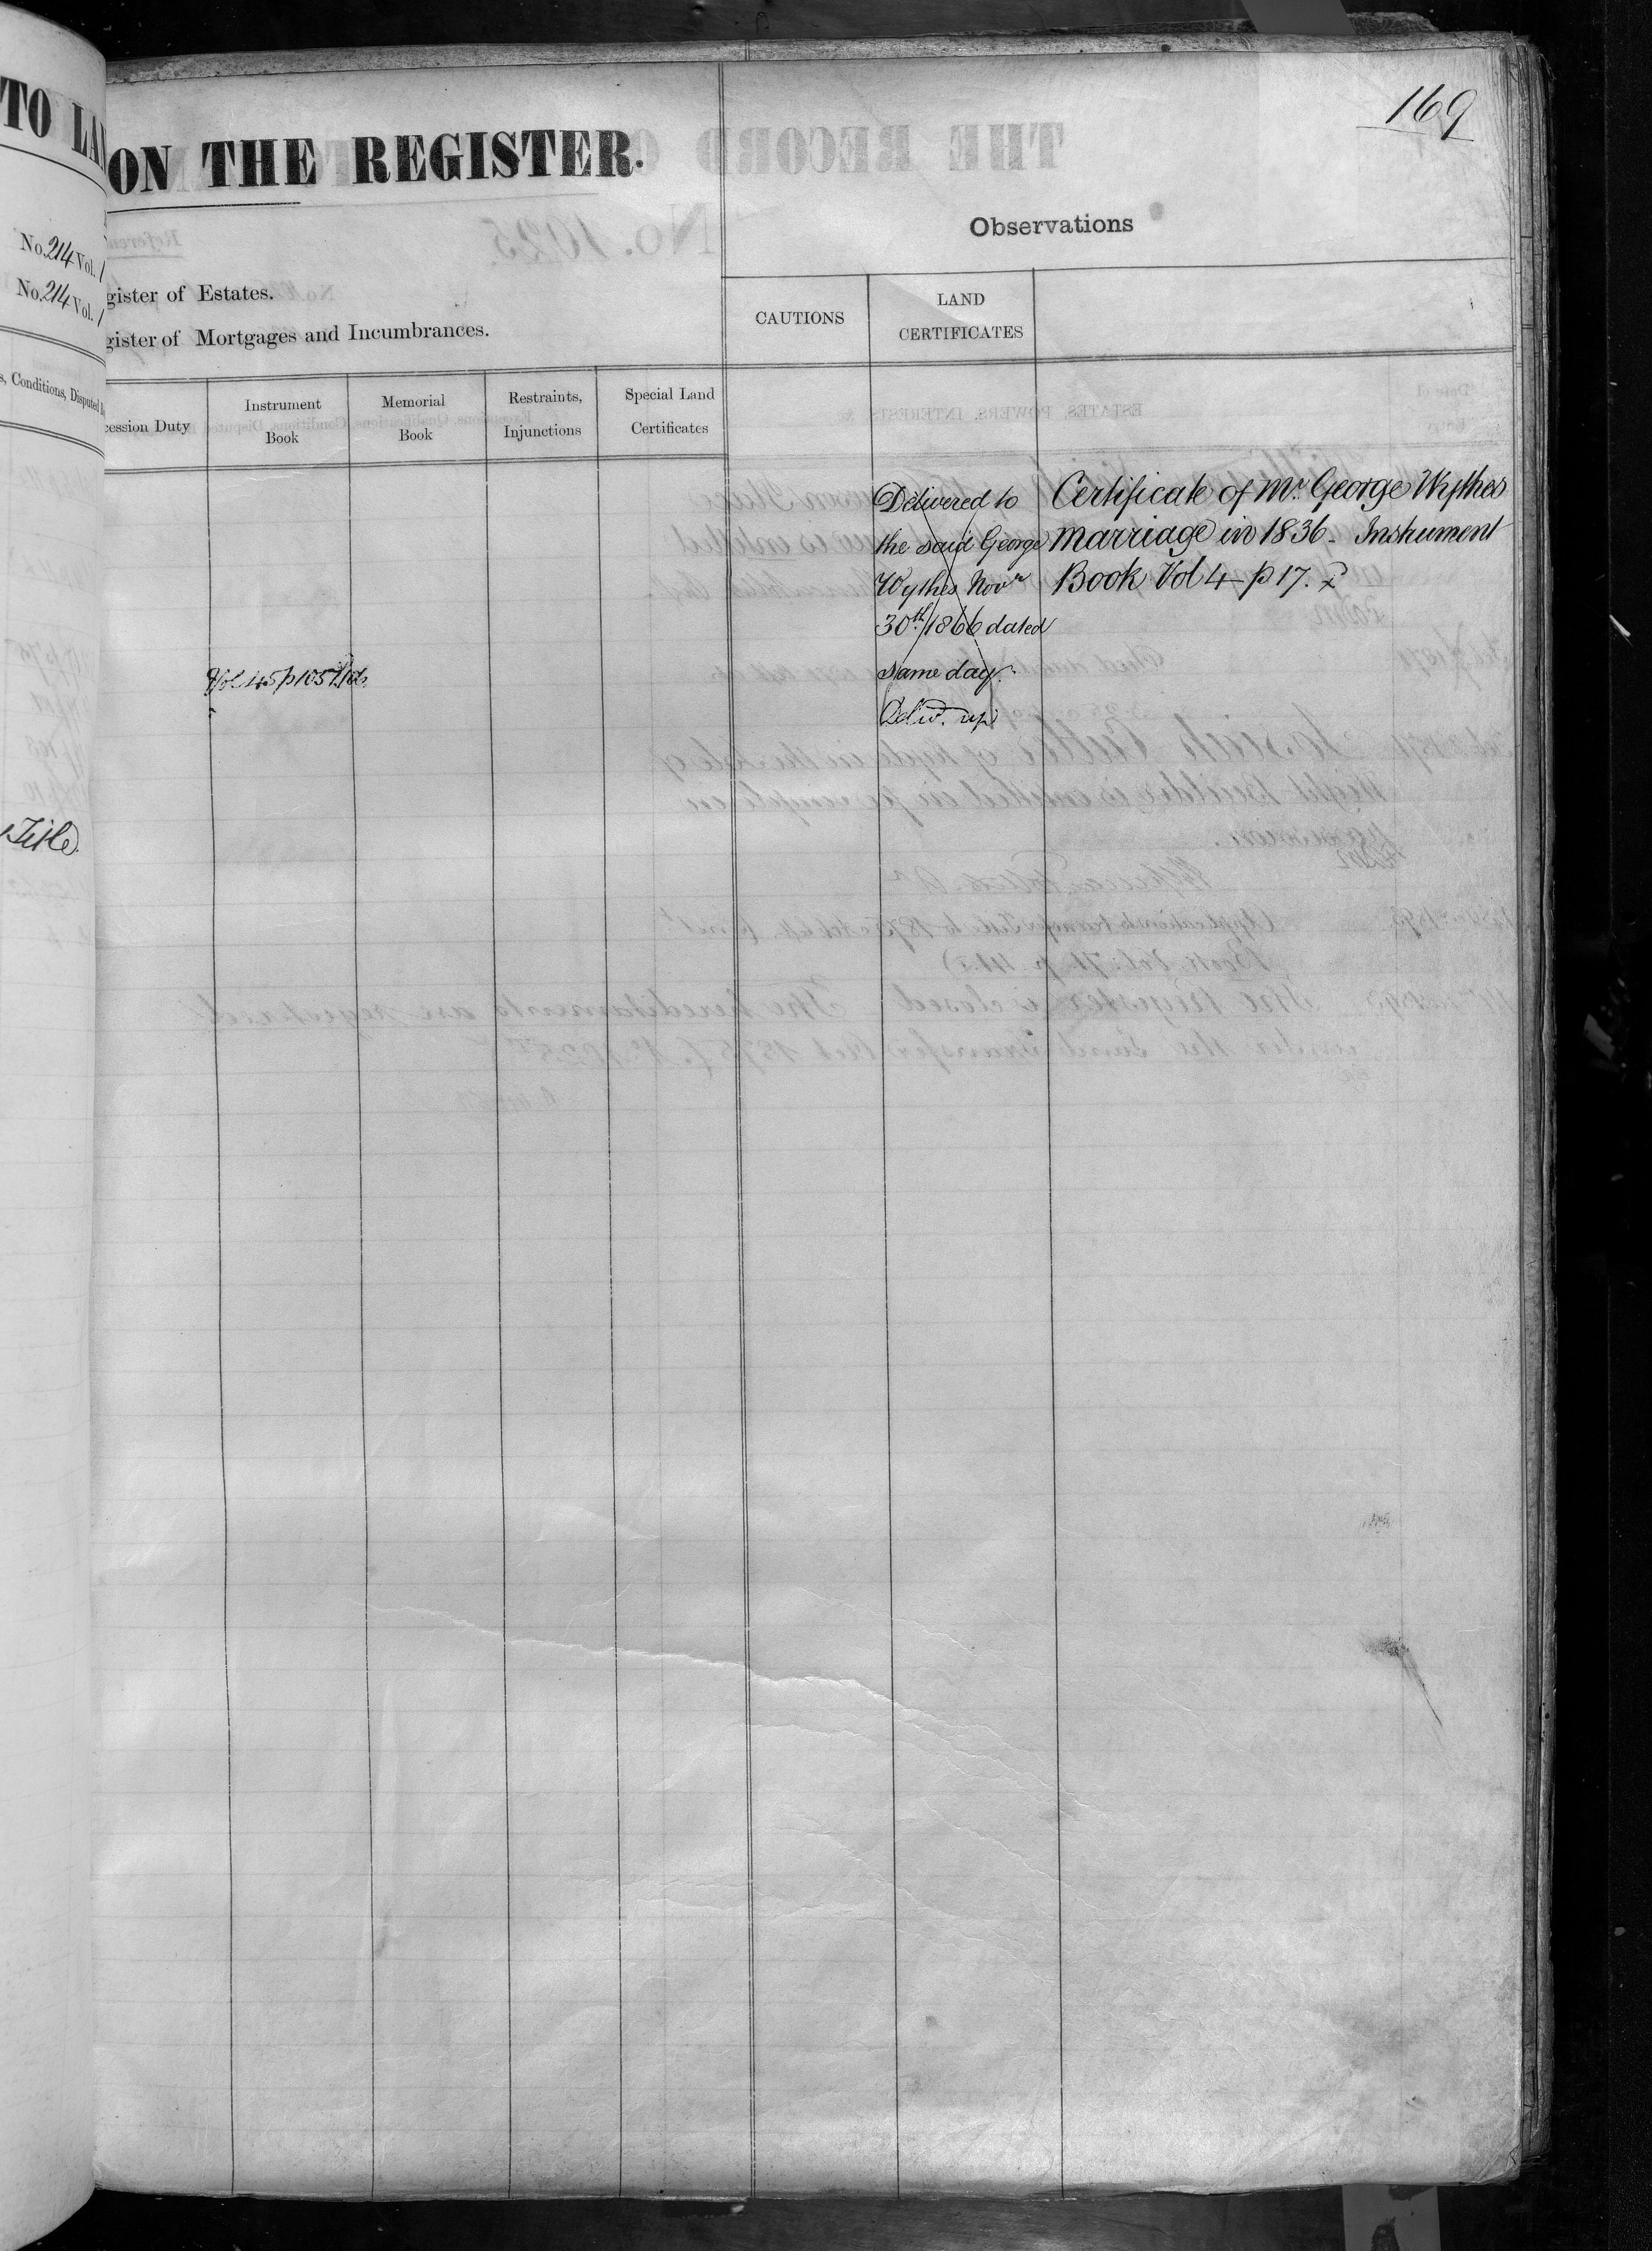 169
TO LA
ON THE REGISTER.
No. 214 Vol. 1
No. 214 Vol. 1
gister of Estates.
gister of Mortgages and Incumbrances.
Observations
CAUTIONS
LAND
CERTIFICATES
s, Conditions, Disputed
cession Duty
Instrument
Book
Memorial
Book
Restraints,
Injunctions
Special Land
Certificates
Delivered to
the said George
Wythes Novr
30th 1866 dated
same day.
Deld. up
Certificate of Mr. George Wythes
marriage in 1836 - Instrument
Book Vol 4 p 17.
Vol 45 p 105
Title